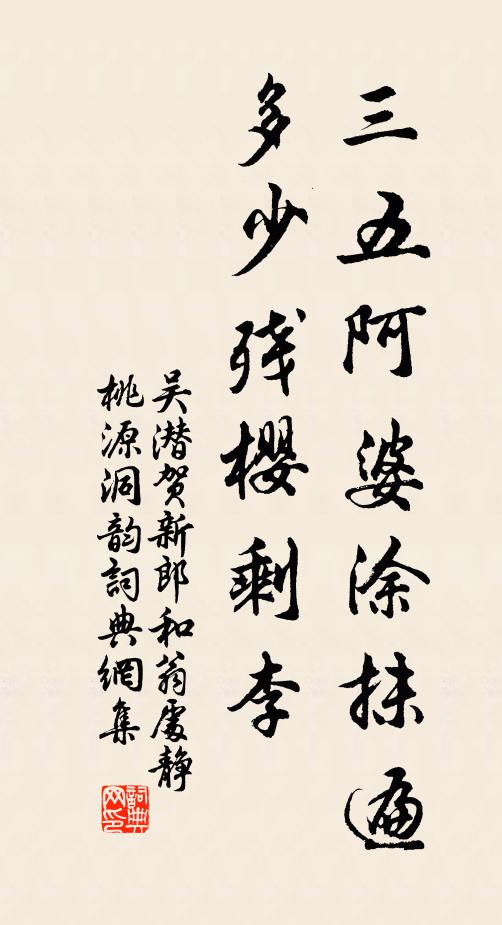 三五阿婆涂抹遍
多少残樱剩李
吴潜贺新郎和翁處静
桃源洞韵詞典網集
詞典
网印